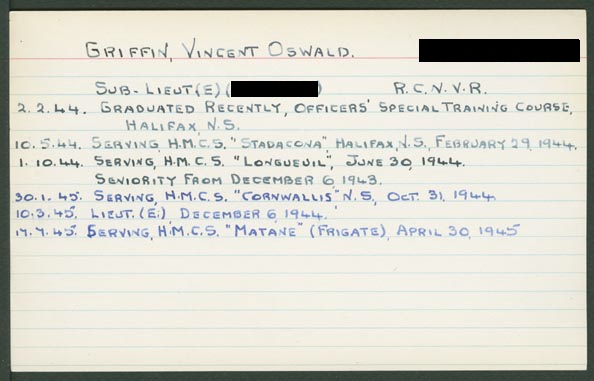 GRIFFIN, VINCENT OSWALD.
SUB-LIEUT(E) ( ) R.C.N.V.R.
2.2.44. GRADUATED RECENTLY, OFFICERS' SPECIAL TRAINING COURSE,
HALIFAX, N.S.
10.5.44. SERVING, H.M.C.S. "STADACONA", HALIFAX, N.S., FEBRUARY 29, 1944.
1.10.44. SERVING, H.M.C.S. "LONGUEUIL", JUNE 30, 1944.
SENIORITY FROM DECEMBER 6, 1943.
30.1.45. SERVING, H.M.C.S. "CORNWALLIS" N.S., OCT. 31, 1944.
10.3.45. LIEUT. (E.), DECEMBER 6, 1944.
17.7.45. SERVING, H.M.C.S. "MATANE" (FRIGATE), APRIL 30, 1945